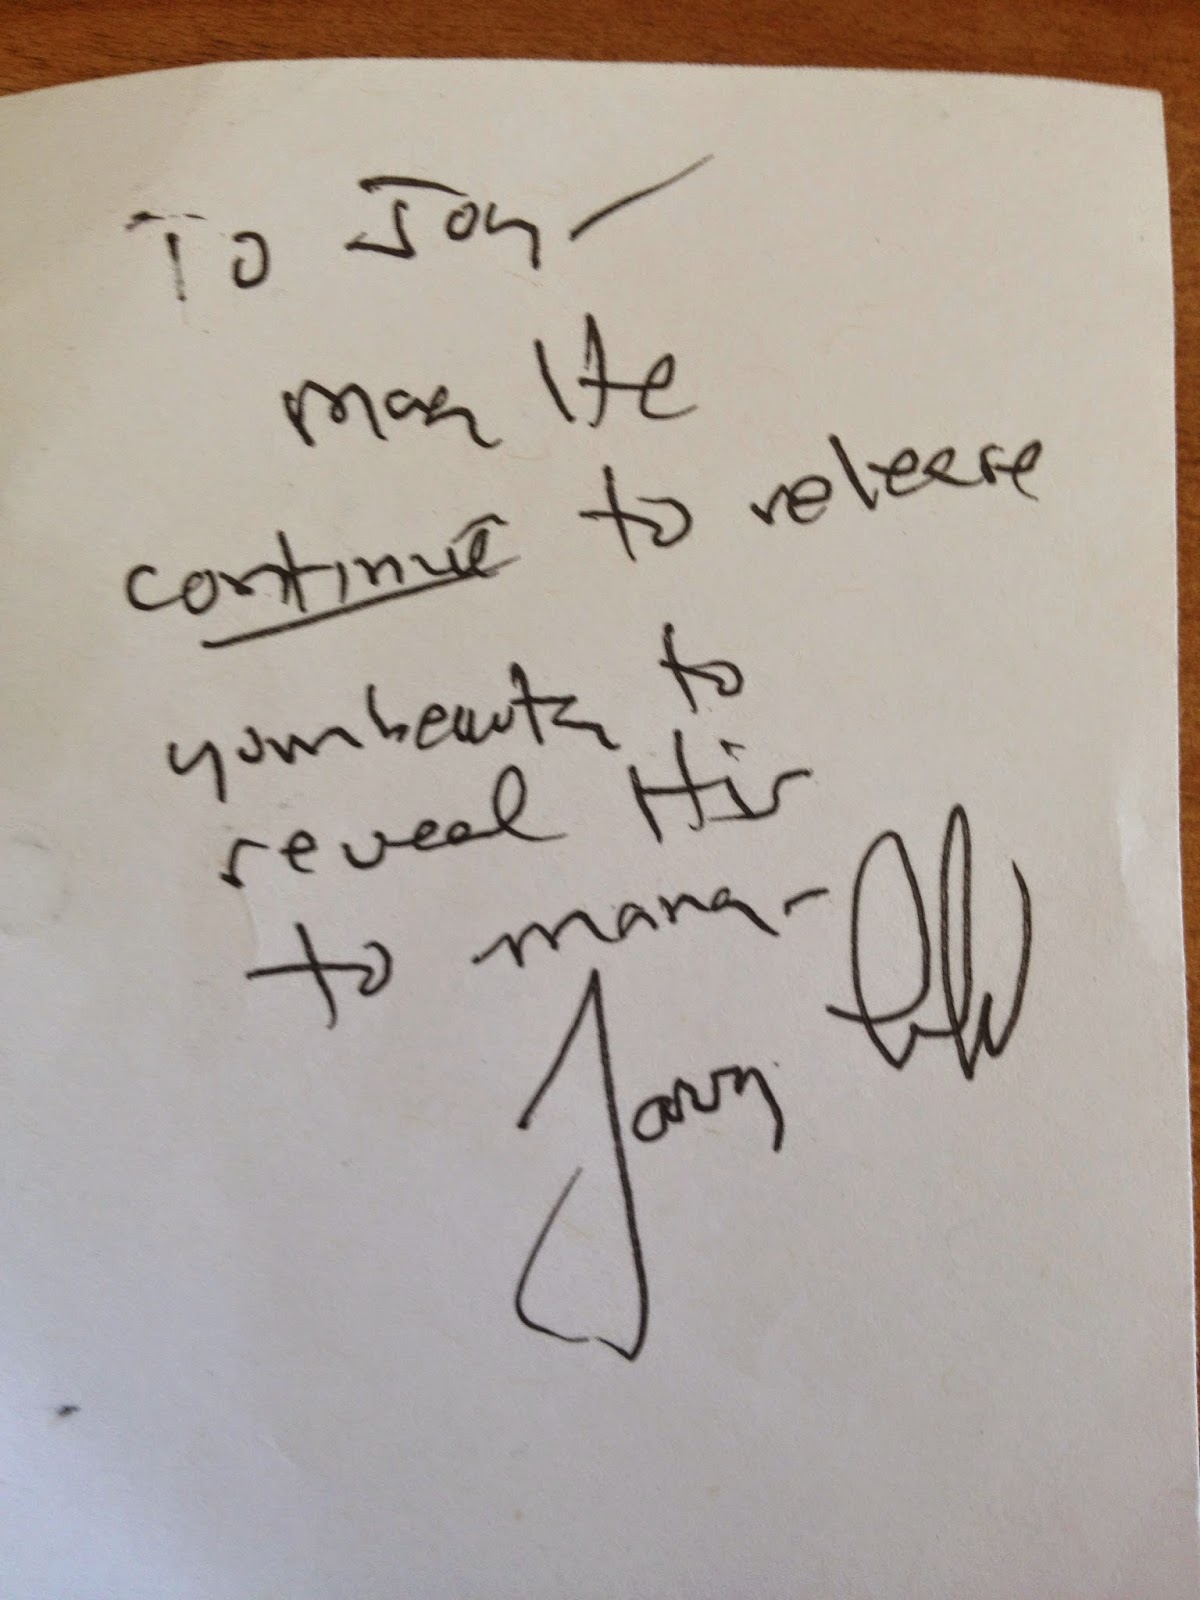 To Joy —
may He
continue to release
your beauty to
reveal His
to many -
Larry